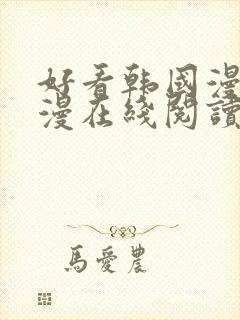 好看韩国漫
漫在綫閱讀
馬愛農